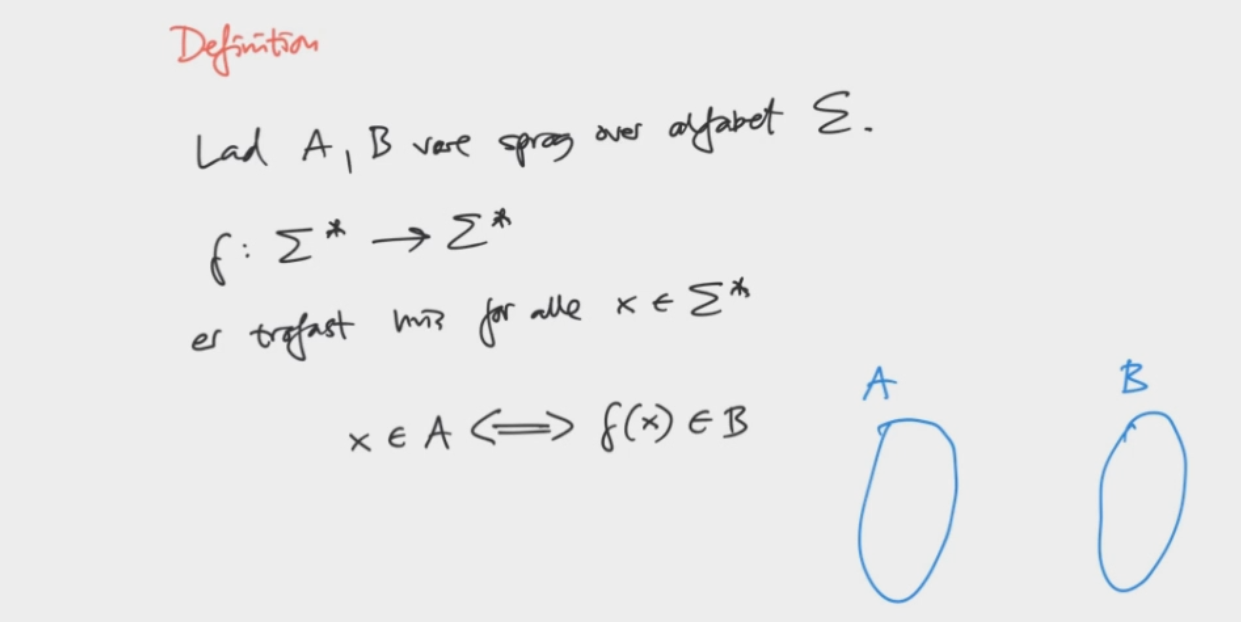 Definition
Lad A, B være sprog over alfabet Σ.
f: Σ* → Σ*
er trofast hvis for alle x ∈ Σ*
x ∈ A ⟺ f(x) ∈ B
A
B